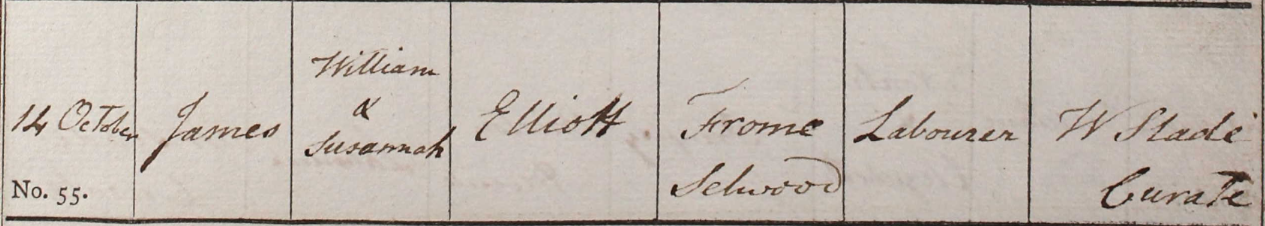 14 October
No. 55.
James
William
&
Susannah
Elliott
Frome
Selwood
Labourer
W Slade
Curate